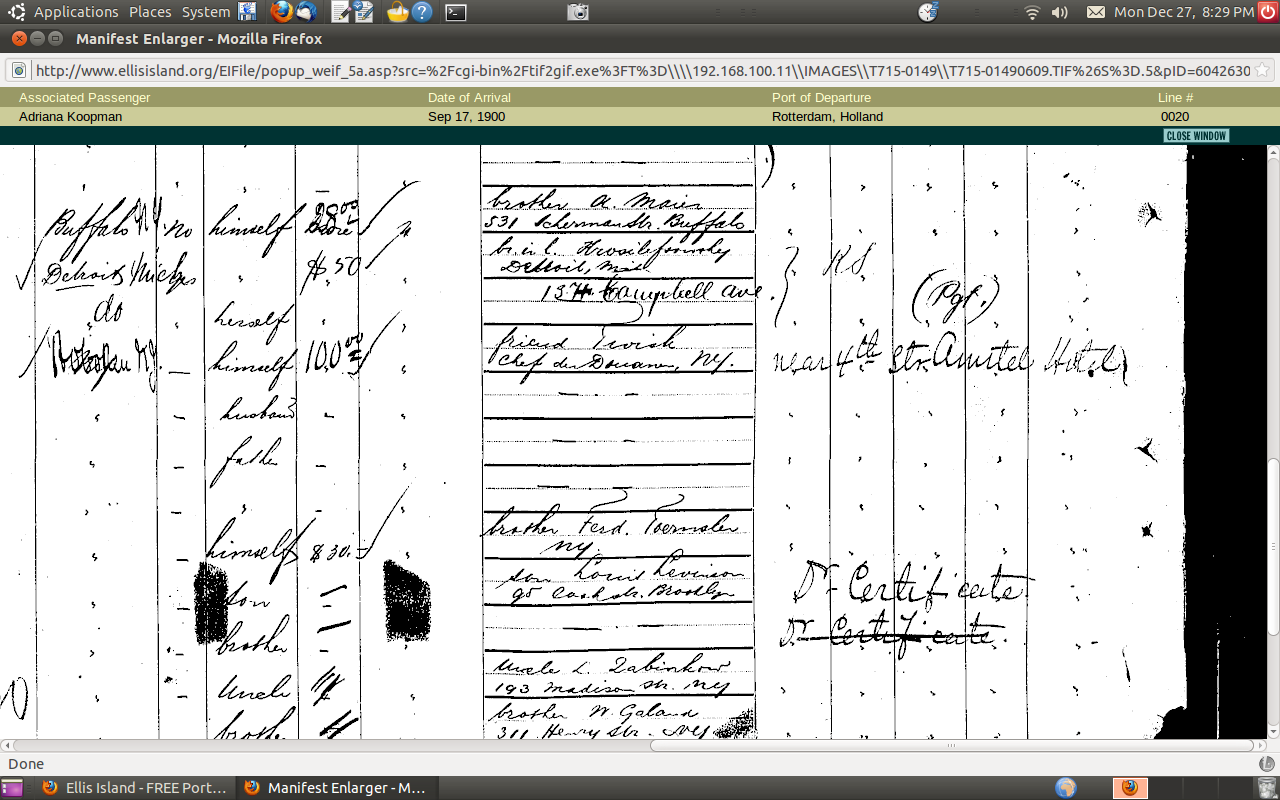 Applications Places System Mon Dec 27, 8:29 PM
Manifest Enlarger - Mozilla Firefox
http://www.ellisisland.org/EIFile/popup_weif_5a.asp?src=%2Fcgi-bin%2Ftif2gif.exe%3FT%3D\\\\192.168.100.11\\IMAGES\\T715-0149\\T715-01490609.TIF%26S%3D.5&pID=6042630
Associated Passenger Date of Arrival Port of Departure Line #
Adriana Koopman Sep 17, 1900 Rotterdam, Holland 0020
CLOSE WINDOW
brother A. Maier
Buffalo NY no himself 531 Scherman Str. Buffalo
br. i. l.
Detroit $50 Detroit, Mich.
Campbell Ave.
(Pgf.)
do herself
friend
himself 100.00 Chef der Douanen, NY. near 4th Str. Hotel
husband
father
brother Ferd.
himself $30.- NY.
son Louis Levinson
son 95 Cook str. Brooklyn Dr. Certificate
brother Dr. Certificate
Uncle L. Zabinkow
Uncle 193 Madison Str. NY
brother W. Galand
brother 311 Henry Str. NY
Done
Ellis Island - FREE Port... Manifest Enlarger - M...